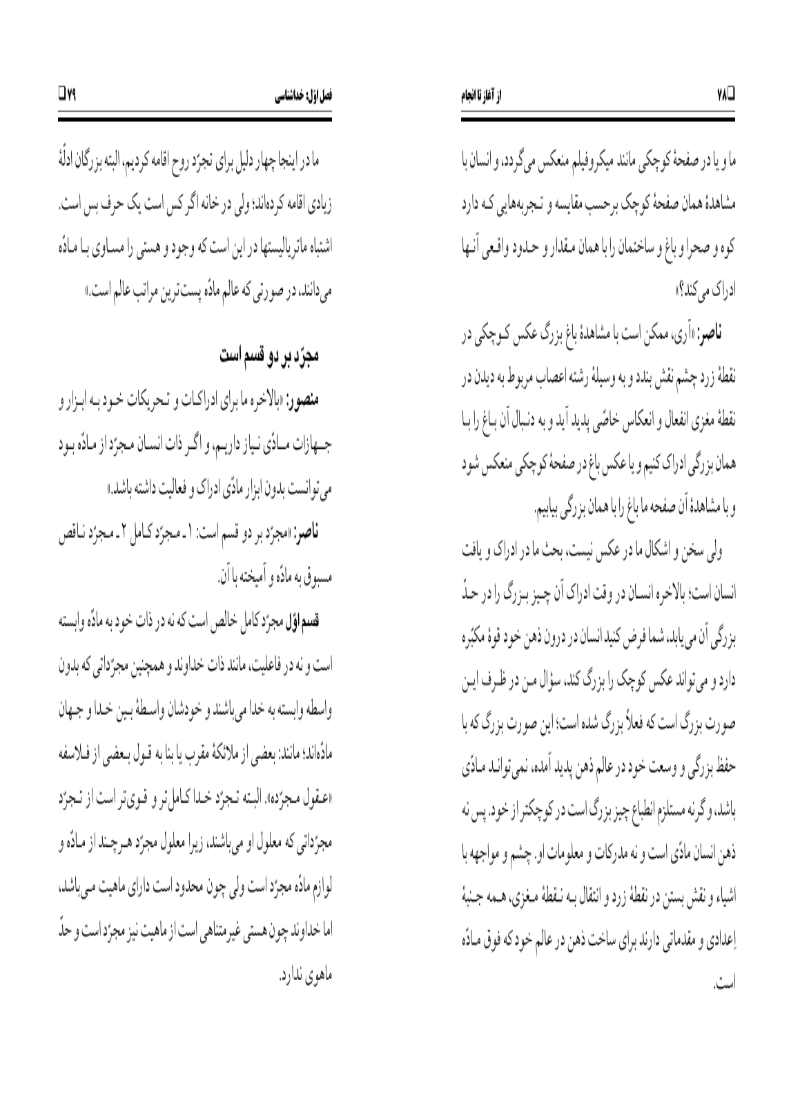 ❑۷۸
از آغاز تا انجام
ما و یا در صفحۀ کوچکی مانند میکروفیلم منعکس می‌گردد، و انسان با
مشاهدۀ همان صفحۀ کوچک بر حسب مقایسه و تجربه‌هایی که دارد
کوه و صحرا و باغ و ساختمان را با همان مقدار و حدود واقعی آنها
ادراک می‌کند؟»
ناصر: «آری، ممکن است با مشاهدۀ باغ بزرگ عکس کوچکی در
نقطۀ زرد چشم نقش بندد و به وسیلۀ رشته اعصاب مربوط به دیدن در
نقطۀ مغزی انفعال و انعکاس خاصّی پدید آید و به دنبال آن باغ را با
همان بزرگی ادراک کنیم و یا عکس باغ در صفحۀ کوچکی منعکس شود
و با مشاهدۀ آن صفحه ما باغ را با همان بزرگی بیابیم.
ولی سخن و اشکال ما در عکس نیست، بحث ما در ادراک و یافت
انسان است؛ بالاخره انسان در وقت ادراک آن چیز بزرگ را در حدّ
بزرگی آن می‌یابد، شما فرض کنید انسان در درون ذهن خود قوۀ مکبّره
دارد و می‌تواند عکس کوچک را بزرگ کند، سؤال من در ظرف این
صورت بزرگ است که فعلاً بزرگ شده است؛ این صورت بزرگ که با
حفظ بزرگی و وسعت خود در عالم ذهن پدید آمده، نمی‌تواند مادّی
باشد، و گرنه مستلزم انطباع چیز بزرگ است در کوچکتر از خود. پس نه
ذهن انسان مادّی است و نه مدرکات و معلومات او. چشم و مواجهه با
اشیاء و نقش بستن در نقطۀ زرد و انتقال به نقطۀ مغزی، همه جنبۀ
اِعدادی و مقدماتی دارند برای ساخت ذهن در عالم خود که فوق مادّه
است.
فصل اوّل: خداشناسی
۷۹❑
ما در اینجا چهار دلیل برای تجرّد روح اقامه کردیم، البته بزرگان ادلّۀ
زیادی اقامه کرده‌اند؛ ولی در خانه اگر کس است یک حرف بس است.
اشتباه ماتریالیستها در این است که وجود و هستی را مساوی با مادّه
می‌دانند، در صورتی که عالم مادّه پست‌ترین مراتب عالم است.»
مجرّد بر دو قسم است
منصور: «بالاخره ما برای ادراکات و تحریکات خود به ابزار و
جهازات مادّی نیاز داریم، و اگر ذات انسان مجرّد از مادّه بود
می‌توانست بدون ابزار مادّی ادراک و فعالیت داشته باشد.»
ناصر: «مجرّد بر دو قسم است: ۱ـ مجرّد کامل ۲ـ مجرّد ناقص
مسبوق به مادّه و آمیخته با آن.
قسم اوّل مجرّد کامل خالص است که نه در ذات خود به مادّه وابسته
است و نه در فاعلیت، مانند ذات خداوند و همچنین مجرّداتی که بدون
واسطه وابسته به خدا می‌باشند و خودشان واسطۀ بین خدا و جهان
مادّه‌اند؛ مانند: بعضی از ملائکۀ مقرب یا بنا به قول بعضی از فلاسفه
«عقول مجرّده». البته تجرّد خدا کامل‌تر و قوی‌تر است از تجرّد
مجرّداتی که معلول او می‌باشند، زیرا معلول مجرّد هرچند از مادّه و
لوازم مادّه مجرّد است ولی چون محدود است دارای ماهیت می‌باشد،
اما خداوند چون هستی غیر متناهی است از ماهیت نیز مجرّد است و حدّ
ماهوی ندارد.